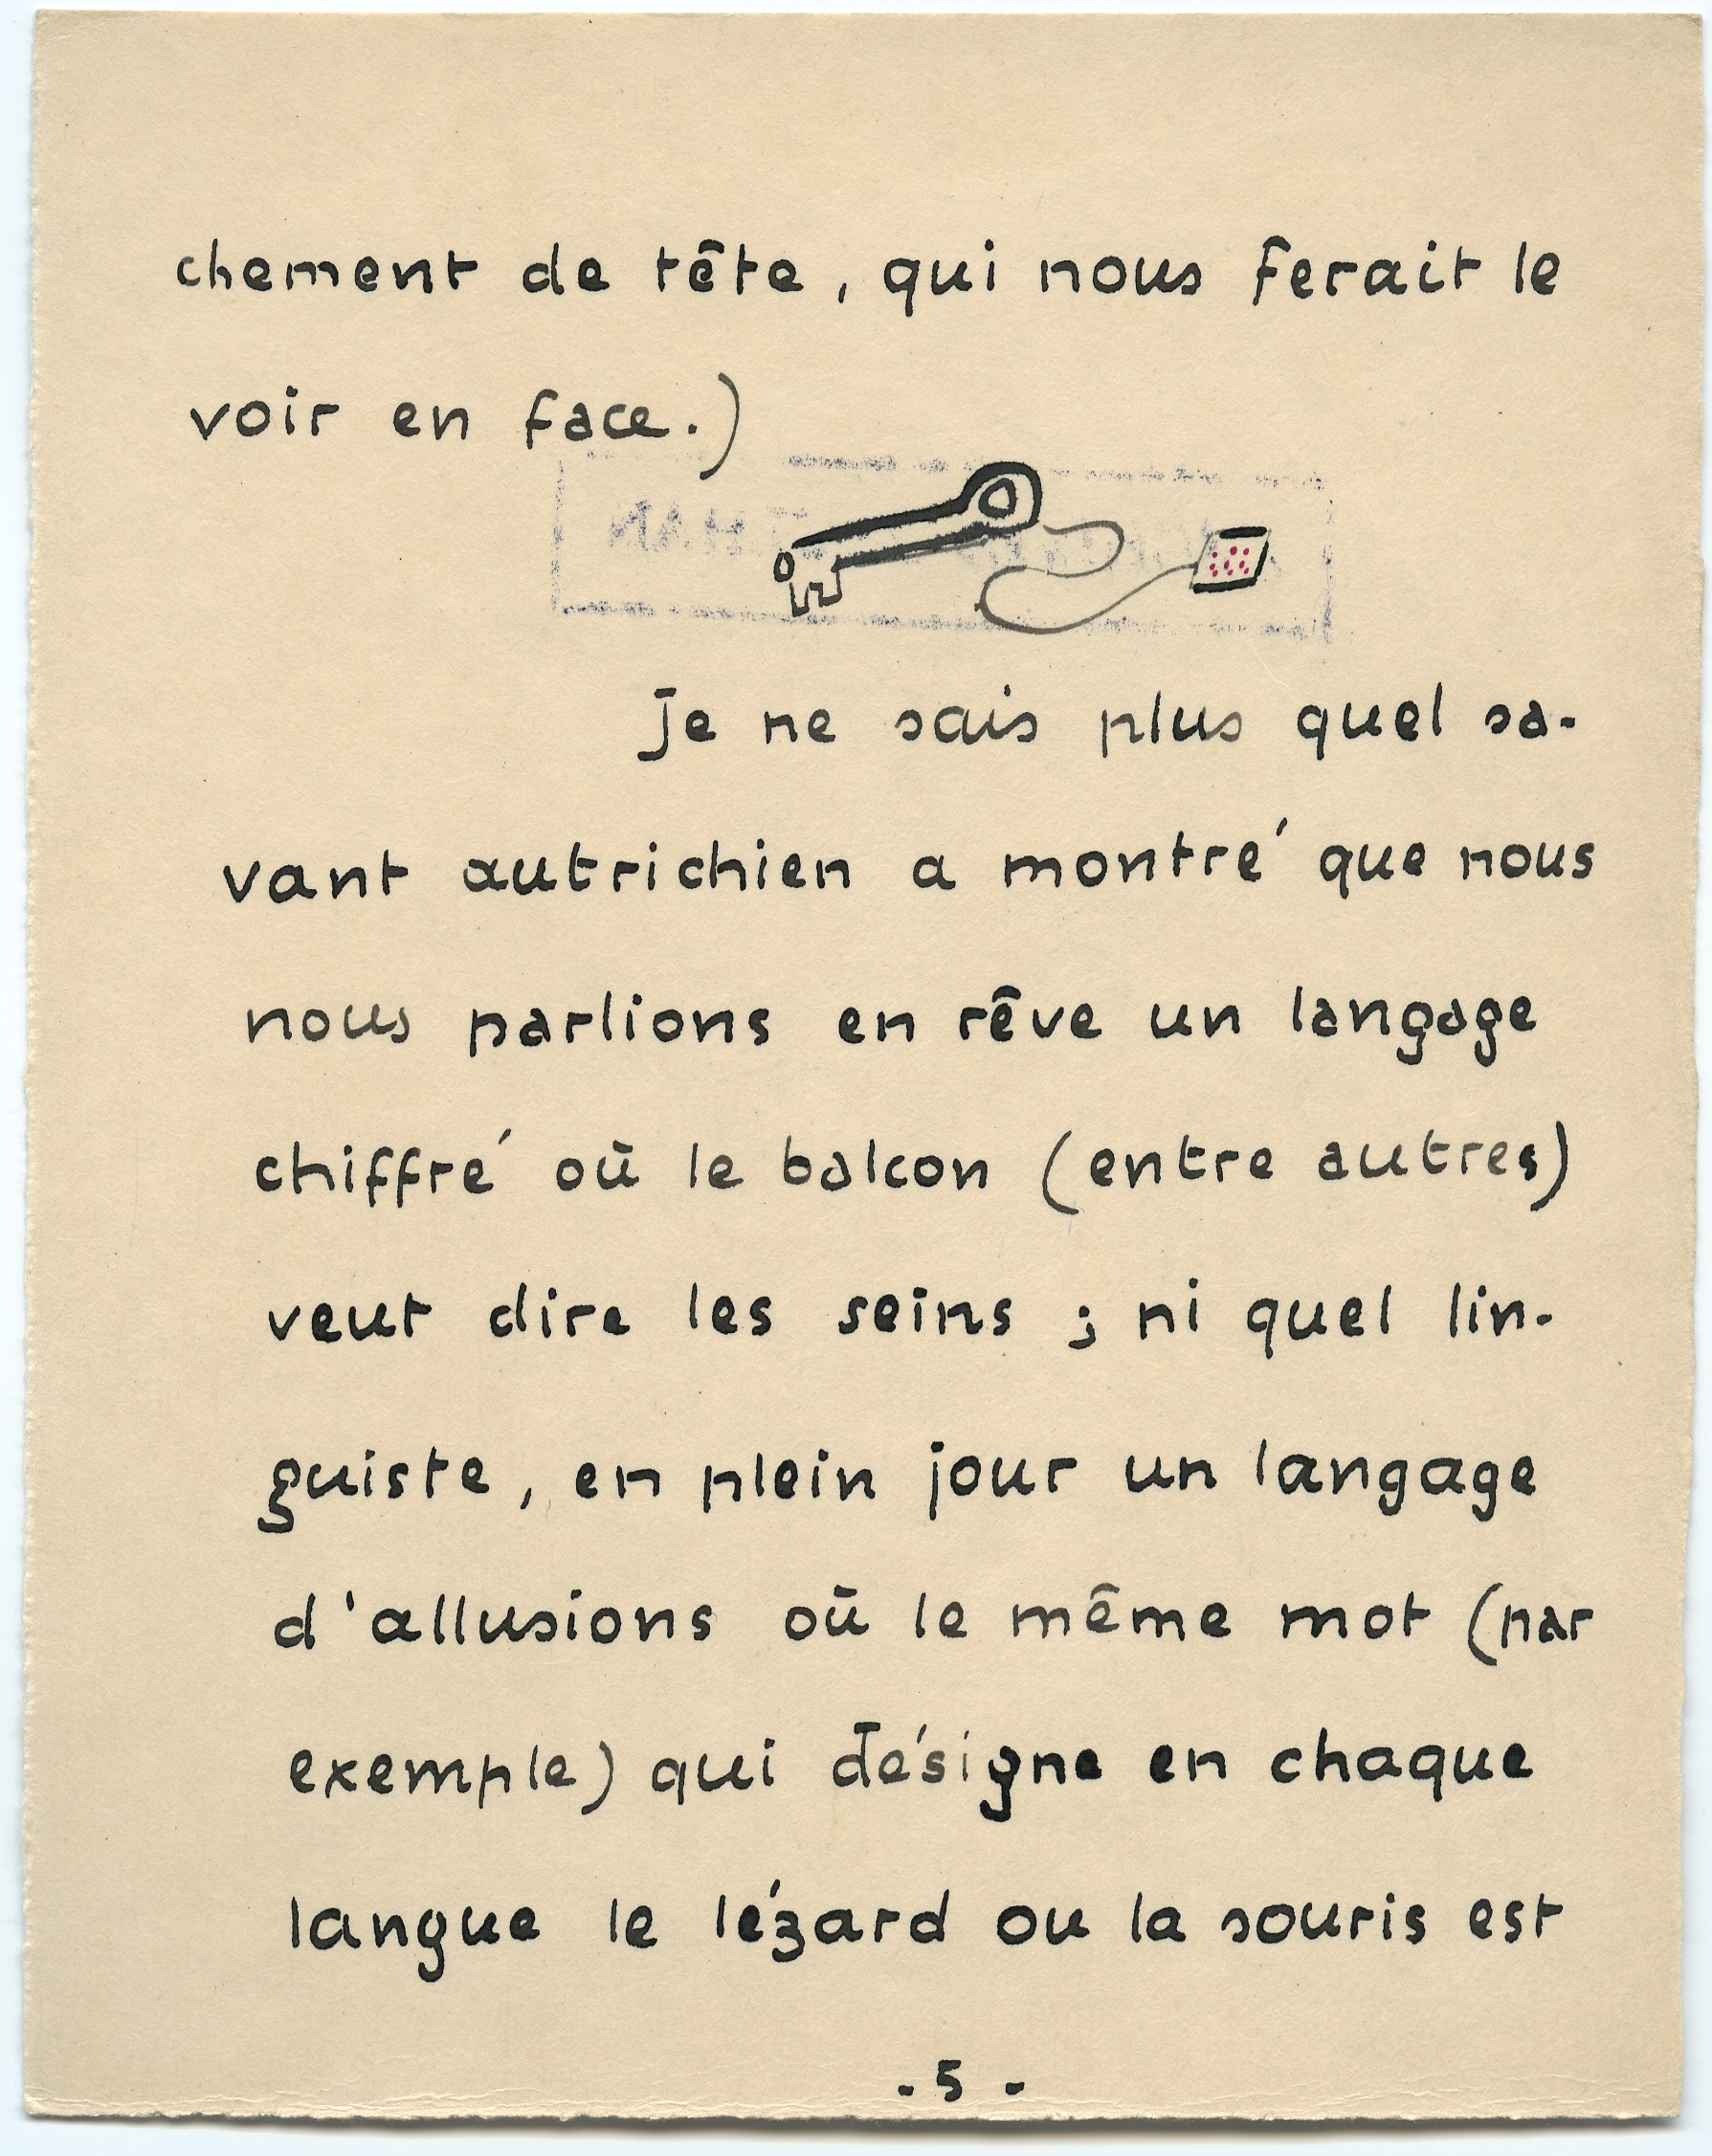 chement de tête, qui nous ferait le
voir en face.)
Je ne sais plus quel sa-
vant autrichien a montré que nous
nous parlions en rêve un langage
chiffré où le balcon (entre autres)
veut dire les seins ; ni quel lin-
guiste, en plein jour un langage
d'allusions où le même mot (par
exemple) qui désigne en chaque
langue le lézard ou la souris est
- 5 -